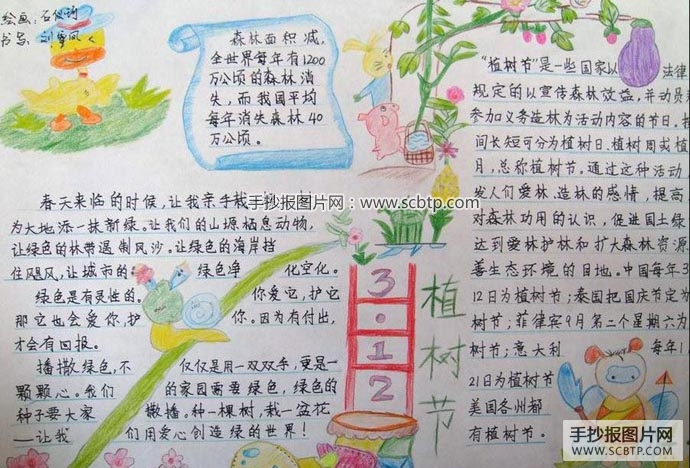 绘画：石
书写：刘
森林面积减，
全世界每年有1200
万公顷的森林消
失，而我国平均
每年消失森林40
万公顷。
春天来临的时候，让我亲手栽
为大地添一抹新绿。让我们的山塬栖息动物，
让绿色的林带遏制风沙。让绿色的海岸挡
住飓风，让城市的绿色净化空化。
绿色是有灵性的。你爱它，护它
那它也会爱你，护你。因为有付出，
才会有回报。
播撒绿色，不仅仅是用一双双手，更是一
颗颗心。我们的家园需要绿色，绿色的
种子要大家撒播。种一棵树，栽一盆花
——让我们用爱心创造绿的世界！
3.12
植树节
"植树节"是一些国家以法律
规定的以宣传森林效益，并动员
参加义务造林为活动内容的节日，
间长短可分为植树日、植树周或植
月，总称植树节。通过这种活动
发人们爱林、造林的感情，提高
对森林功用的认识，促进国土绿
达到爱林护林和扩大森林资源
善生态环境的目地。中国每年3
12日为植树节；泰国把国庆节定为
树节；菲律宾9月第二个星期六为
树节；意大利每年1
21日为植树节
美国各州都
有植树节。
手抄报图片网——www.scbtp.com
手抄报图片网
WWW.SCBTP.COM